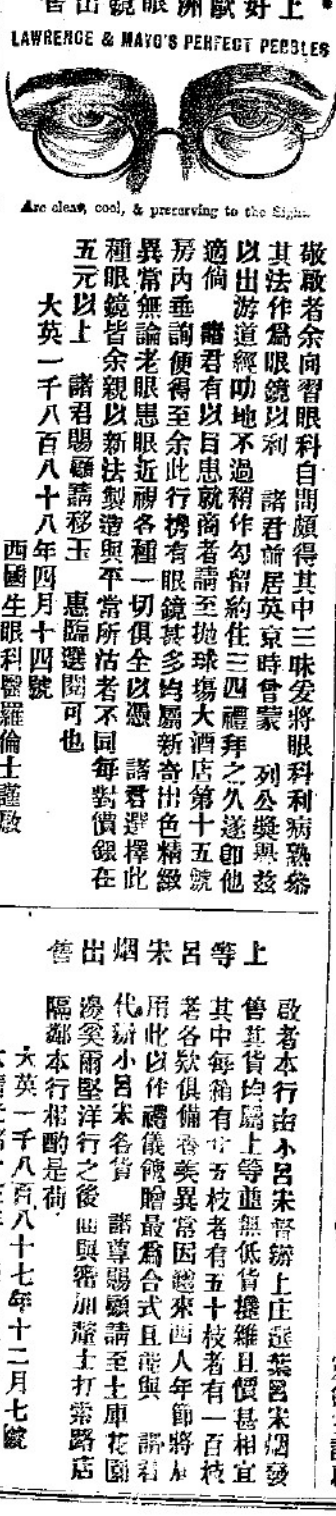 上好歐洲眼鏡出售
LAWRENCE & MAYO'S PERFECT PEBBLES
Are clear, cool, & preserving to the Sight.
敬啟者余向習眼科自問頗得其中三昧爰將眼科利病熟參
其法作為眼鏡以利 諸君前居英京時曾蒙 列公獎譽茲
以出游道經叻地不過稍作勾留約住三四禮拜之久遂即他
適倘 諸君有以目患就商者請至拋球塲大酒店第十五號
房內垂詢便得至余此行携有眼鏡甚多均屬新奇出色精緻
異常無論老眼患眼近視各種一切俱全以憑 諸君選擇此
種眼鏡皆余親以新法製造與平常所沽者不同每對價銀在
五元以上 諸君賜顧請移玉 惠臨選閱可也
大英一千八百八十八年四月十四號
西國生眼科醫羅倫士謹啟
上等呂宋烟出售
啟者本行由小呂宋督辦上庄選葉呂宋烟發
售其貨均屬上等並無低貨攙雜且價甚相宜
其中每箱有廿五枝者有五十枝者有一百枝
者各欵俱備香美異常因越來西人年節將屆
用此以作禮儀餽贈最為合式且能與 諸君
代辦小呂宋各貨 諸尊賜顧請至土庫花園
邊奚爾堅洋行之後面與密加釐士打索路店
隔鄰本行相酌是荷
大英一千八百八十七年十二月七號